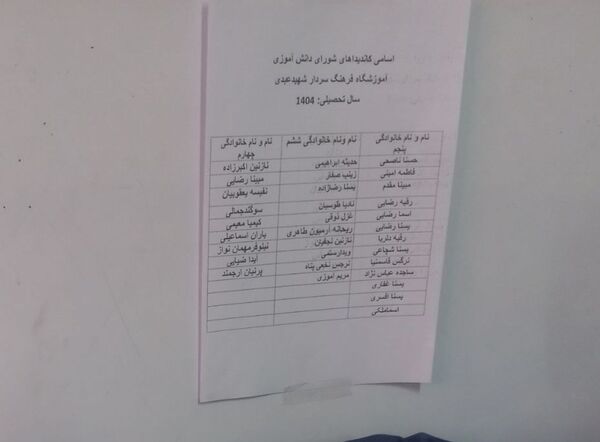 اسامی کاندیداهای شورای دانش آموزی
آموزشگاه فرهنگ سردار شهیدعبدی
سال تحصیلی: 1404
نام و نام خانوادگی پنجم نام ونام خانوادگی ششم نام و نام خانوادگی چهارم
حسنا ناصحی حدیثه ابراهیمی نازنین اکبرزاده
فاطمه امینی زینب صفار مبینا رضایی
مبینا مقدم یسنا رضازاده نفیسه یعقوبیان
رقیه رضایی نادیا طوسیان سوگندجمالی
اسما رضایی غزل ذوقی کیمیا معیمی
یسنا رضایی ریحانه آرمیون طاهری باران اسماعیلی
رقیه داریا نازنین نجفیان نیلوفرمهمان نواز
یسنا شجاعی ویدارستمی آیدا ضیایی
نرگس قاسمنیا نرجس نخعی پناه پرنیان ارجمند
ساجده عباس نژاد مریم آموزی
یسنا غفاری
یسنا افسری
اسماملکی